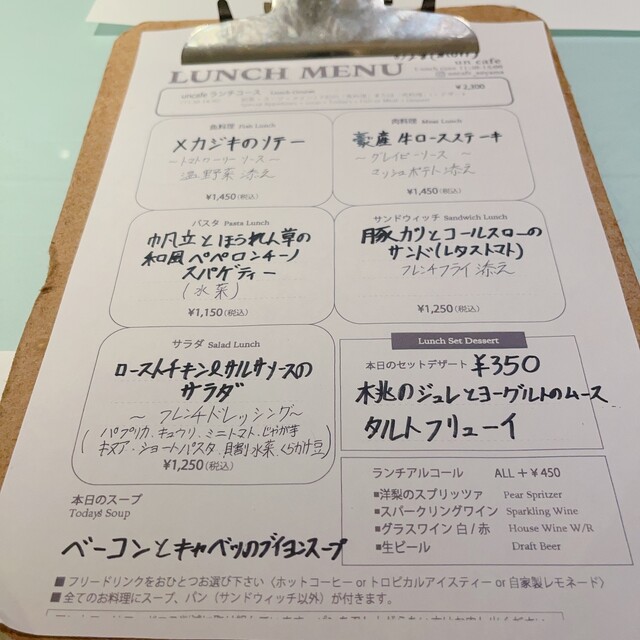 LUNCH MENU
on cafe
ランチコース
¥2,300
魚料理 Fish Lunch
メカジキのソテー
～トマトクーリーソース～
温野菜添え
¥1,450(税込)
肉料理 Meat Lunch
豪産牛ロースステーキ
～グレイビーソース～
マッシュポテト添え
¥1,450(税込)
パスタ Pasta Lunch
帆立とほうれん草の
和風ペペロンチーノ
スパゲティー
(水菜)
¥1,150(税込)
サンドウィッチ Sandwich Lunch
豚カツとコールスローの
サンド(レタストマト)
フレンチフライ添え
¥1,250(税込)
サラダ Salad Lunch
ローストチキン&サルサソースの
サラダ
～フレンチドレッシング～
(パプリカ.キュウリ.ミニトマト.じゃがいも
キヌア.ショートパスタ.貝割.水菜.くらかけ豆)
¥1,250(税込)
Lunch Set Dessert
本日のセットデザート ¥350
桃のジュレとヨーグルトのムース
タルトフリューイ
ランチアルコール ALL＋¥450
■洋梨のスプリッツァ Pear Spritzer
■スパークリングワイン Sparkling Wine
■グラスワイン 白/赤 House Wine W/R
■生ビール Draft Beer
本日のスープ
Todays Soup
ベーコンとキャベツのブイヨンスープ
■ フリードリンクをおひとつお選び下さい（ホットコーヒー or トロピカルアイスティー or 自家製レモネード）
■ 全てのお料理にスープ、パン（サンドウィッチ以外）が付きます。